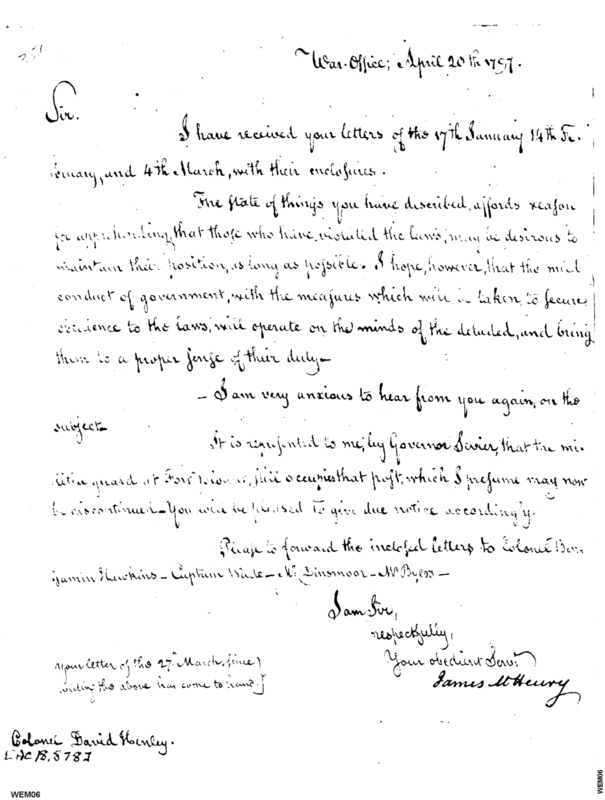 War-Office; April 20th 1797.
Sir.
I have received your letters of the 17th January 14th Fe-
bruary, and 4th March, with their enclosures.
The state of things you have described, affords reason
for apprehending, that those who have, violated the laws, may be desirous to
maintain their position, as long as possible. I hope, however, that the mild
conduct of government, with the measures which will be taken, to secure
obedience to the laws, will operate on the minds of the deluded, and bring
them to a proper sense of their duty—
— I am very anxious to hear from you again, on the
subject—
It is represented to me, by Governor Sevier, that the mi-
litia guard at Fort still occupies that post, which I presume may now
be discontinued—You will be pleased to give due notice accordingly.
Please to forward the inclosed letters to Colonel Ben-
jamin Hawkins—Captain Wade—Mr Dinsmoor—Mr Byers—
I am Sir,
respectfully,
Your obedient Servt
James McHenry
your letter of the 27th March, since
writing the above has come to hand.
Colonel David Henley.
WEM06
WEM06